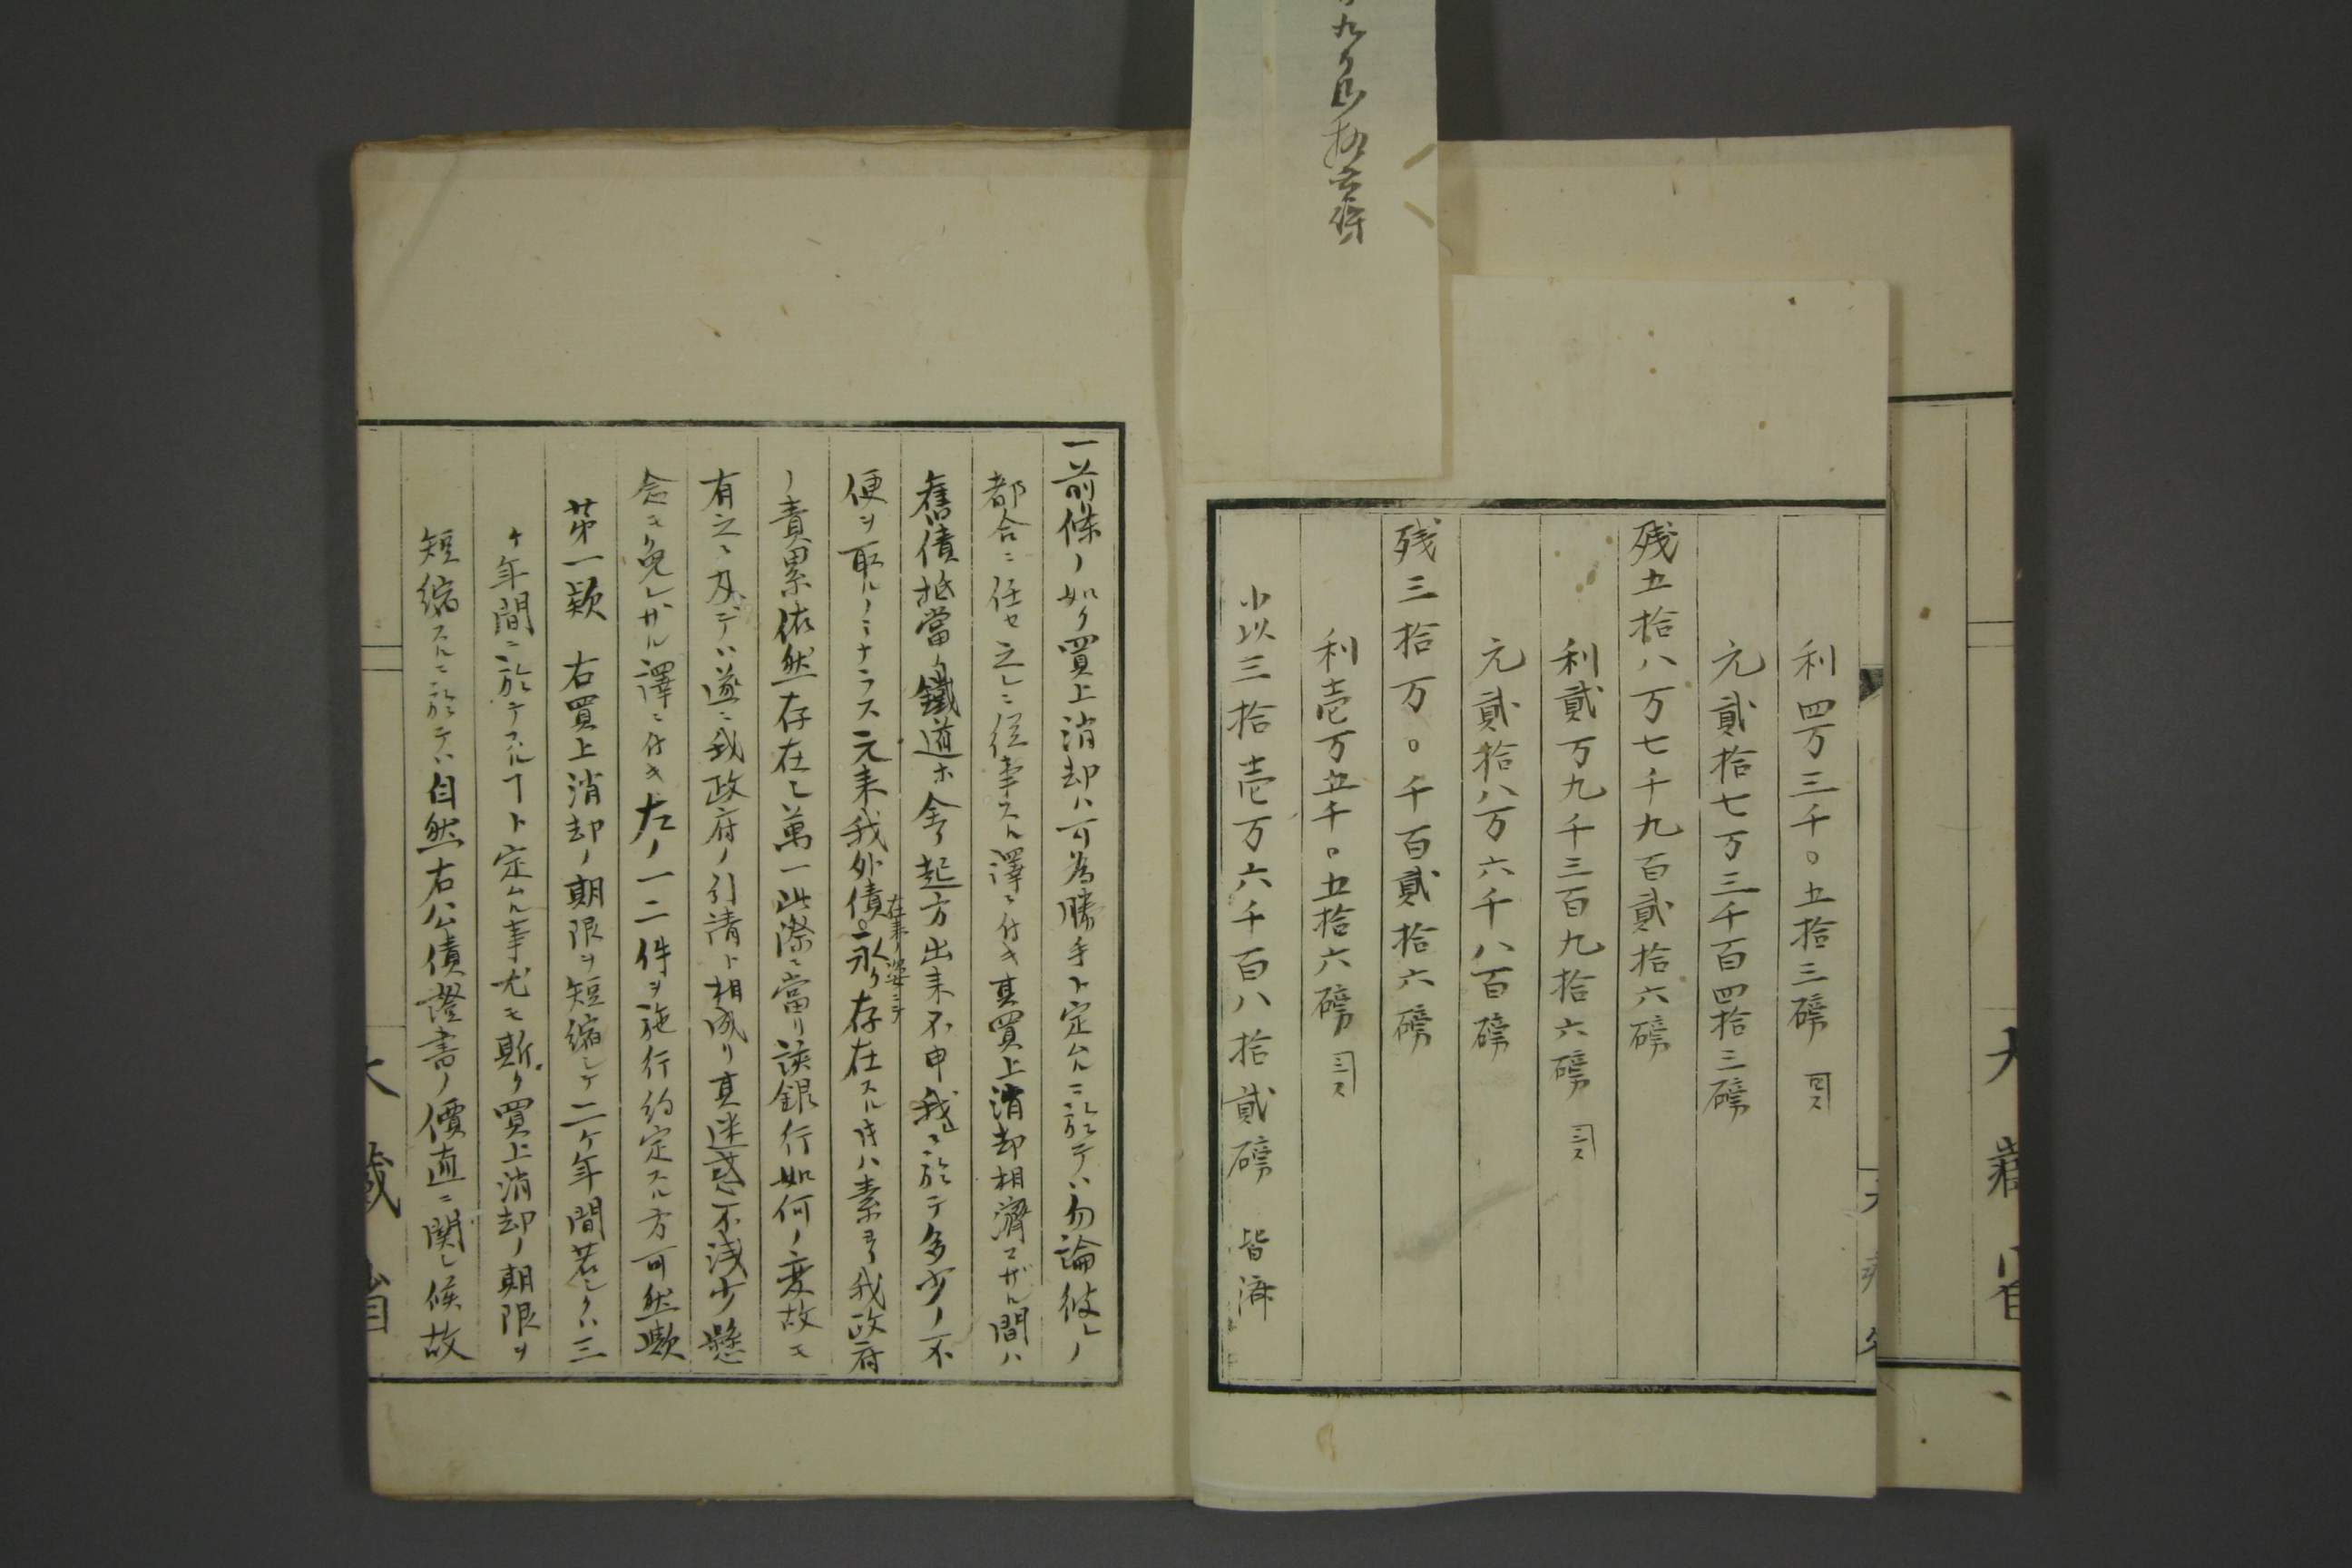 利四万三千〇五拾三磅
元貳拾七万三千百四拾三磅
残五拾八万七千九百貳拾六磅
利貳万九千三百九拾六磅
元貳拾八万六千八百磅
残三拾万〇千百貳拾六磅
利壱万五千〇五拾六磅
小以三拾壱万六千百八拾貳磅 皆済
一前條ノ如ク買上消却ハ可為勝手ト定ムルニ於テハ勿論彼レノ
都合ニ任セ之レニ従事スル譯ニ付キ其買上消却相濟マザル間ハ
舊債抵當ノ鐵道ホ舎ノ起方出来不申我ニ於テ多少ノ不
便ヲ取ルノミナラス元来我外債在来ノ姿ニテ永ク存在スル時ハ素ヨリ我政府
ノ責累依然存在シ萬一此際ニ當リ該銀行如何ノ変故モ
有之ニ及デハ遂ニ我政府ノ引請ト相成リ其迷惑不浅少懸
念モ免レガル譯ニ付キ左ノ一二件ヲ施行約定スル方可然歟
第一款 右買上消却ノ期限ヲ短縮シテ二ケ年間若シクハ三
ケ年間ニ於テスルヿト定ムル事尤モ斯ク買上消却ノ期限ヲ
短縮スルニ於テハ自然右公債證書ノ價直ニ関シ候故
大藏省